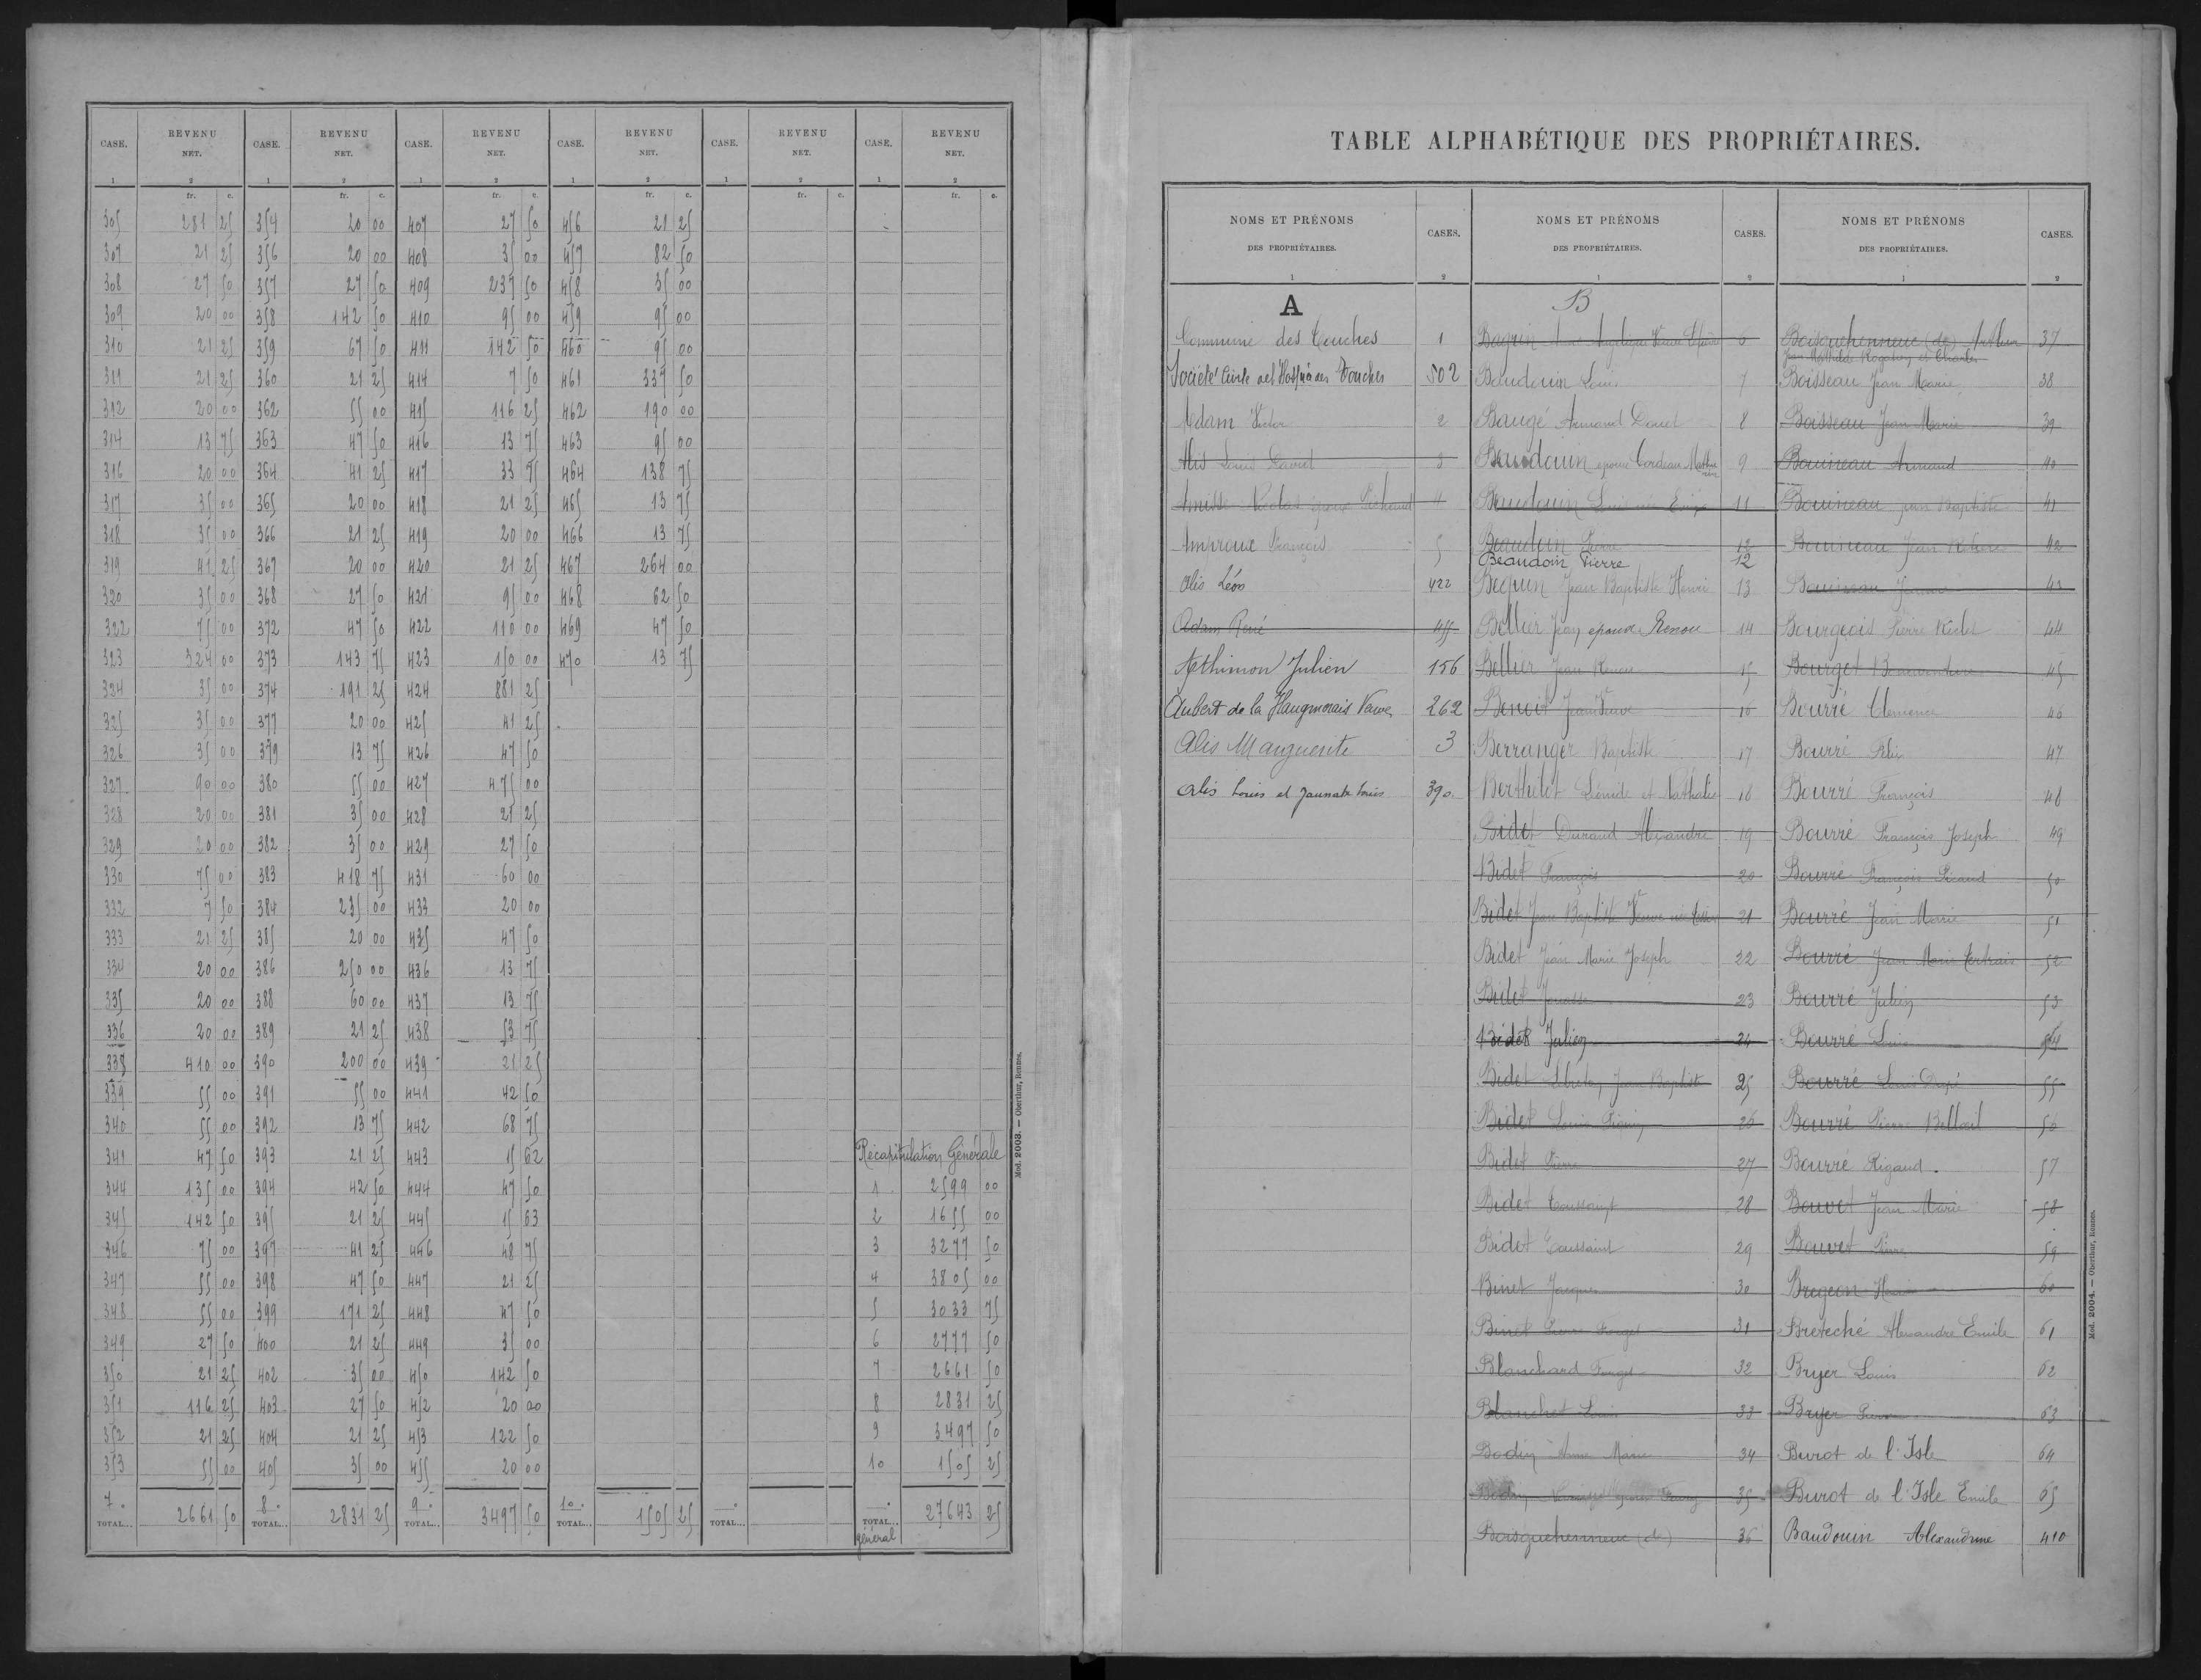 CASE. REVENU NET. CASE. REVENU NET. CASE. REVENU NET. CASE. REVENU NET. CASE. REVENU NET. CASE. REVENU NET.
1 2 1 2 1 2 1 2 1 2 1 2
fr. c. fr. c. fr. c. fr. c. fr. c. fr. c.
305 281 25 354 20 00 407 27 50 456 21 25
307 21 25 356 20 00 408 35 00 457 82 50
308 27 50 357 27 50 409 237 50 458 35 00
309 20 00 358 142 50 410 95 00 459 95 00
310 21 25 359 67 50 411 142 50 460 95 00
311 21 25 360 21 25 414 7 50 461 337 50
312 20 00 362 55 00 415 116 25 462 190 00
314 13 75 363 47 50 416 13 75 463 95 00
316 20 00 364 41 25 417 33 75 464 138 75
317 35 00 365 20 00 418 21 25 465 13 75
318 35 00 366 21 25 419 20 00 466 13 75
319 41 25 367 20 00 420 21 25 467 264 00
320 35 00 368 27 50 421 95 00 468 62 50
322 75 00 372 47 50 422 110 00 469 47 50
323 324 00 373 143 75 423 150 00 470 13 75
324 35 00 374 191 25 424 881 25
325 35 00 377 20 00 425 41 25
326 35 00 379 13 75 426 47 50
327 90 00 380 55 00 427 475 00
328 20 00 381 35 00 428 21 25
329 20 00 382 35 00 429 27 50
330 75 00 383 418 75 431 60 00
332 7 50 384 235 00 433 20 00
333 21 25 385 20 00 435 47 50
334 20 00 386 250 00 436 13 75
335 20 00 388 60 00 437 13 75
336 20 00 389 21 25 438 53 75
338 410 00 390 200 00 439 21 25
339 55 00 391 55 00 441 42 50
340 55 00 392 13 75 442 68 75
341 47 50 393 21 25 443 15 62 Récapitulation Générale
344 135 00 394 42 50 444 47 50 1 2599 00
345 142 50 395 21 25 445 15 63 2 1655 00
346 75 00 397 41 25 446 48 75 3 3277 50
347 55 00 398 47 50 447 21 25 4 3805 00
348 55 00 399 171 25 448 47 50 5 3033 75
349 27 50 400 21 25 449 35 00 6 2777 50
350 21 25 402 35 00 450 142 50 7 2661 50
351 116 25 403 27 50 452 20 00 8 2831 25
352 21 25 404 21 25 453 122 50 9 3497 50
353 55 00 405 35 00 455 20 00 10 1505 25
7. TOTAL... 2661 50 8. TOTAL... 2831 25 9. TOTAL... 3497 50 10. TOTAL... 1505 25 TOTAL... TOTAL... général 27643 25
Mod. 2003. — Oberthur, Rennes.
TABLE ALPHABÉTIQUE DES PROPRIÉTAIRES.
NOMS ET PRÉNOMS DES PROPRIÉTAIRES. CASES. NOMS ET PRÉNOMS DES PROPRIÉTAIRES. CASES. NOMS ET PRÉNOMS DES PROPRIÉTAIRES. CASES.
1 2 1 2 1 2
A
Commune des Touches 1
Société Civile des Touches 502
Adam Victor 2
Alis Louis David 3
4
Amproux François 5
Alis Léon 422
Adam René 455
Athimon Julien 156
Aubert de la Haugmorais Veuve 262
Alis Marguerite 3
Alis Louis et Jaunatre Louis 390
B
6
Baudouin Louis 7
Baugé Armand Douet 8
Beaudouin épouse Cordeau 9
Beaudouin 11
Beaudoin Pierre 12
Beaudoin Pierre 12
Bequin Jean Baptiste Henri 13
Bellier Jean époux Renou 14
Bellier Jean 15
Benoit Jean Veuve 16
Berranger Baptiste 17
Berthelot Léonide et Nathalie 18
Bidet Durand Alexandre 19
Bidet François 20
Bidet Jean Baptiste Veuve 21
Bidet Jean Marie Joseph 22
Bidet 23
Bidet Julien 24
Bidet Jean Baptiste 25
Bidet Louis 26
Bidet Pierre 27
Bidet Toussaint 28
Bidet Toussaint 29
Binet Jacques 30
Binet Pierre 31
Blanchard 32
Blanchet Louis 33
Bodin Anne Marie 34
35
Boisguehenneuc (de) 36
Boisguehenneuc (de) Arthur 37
Boisseau Jean Marie 38
Boisseau Jean Marie 39
Bouineau Armand 40
Bouineau Jean Baptiste 41
Bouineau Jean 42
Bouineau 43
Bourgeois Pierre 44
Bourget 45
Bourré Clémence 46
Bourré Félix 47
Bourré François 48
Bourré François Joseph 49
Bourré François Picaud 50
Bourré Jean Marie 51
Bourré Jean Marie 52
Bourré Julien 53
Bourré Louis 54
Bourré Louis 55
Bourré Pierre 56
Bourré Rigaud. 57
Bouvet Jean Marie 58
Bouvet Pierre 59
Bregeon 60
Breteché Alexandre Emile 61
Bryer Louis 62
Bryer Pierre 63
Burot de l'Isle 64
Burot de l'Isle Emile 65
Baudouin Alexandrine 410
Mod. 2004. — Oberthur, Rennes.